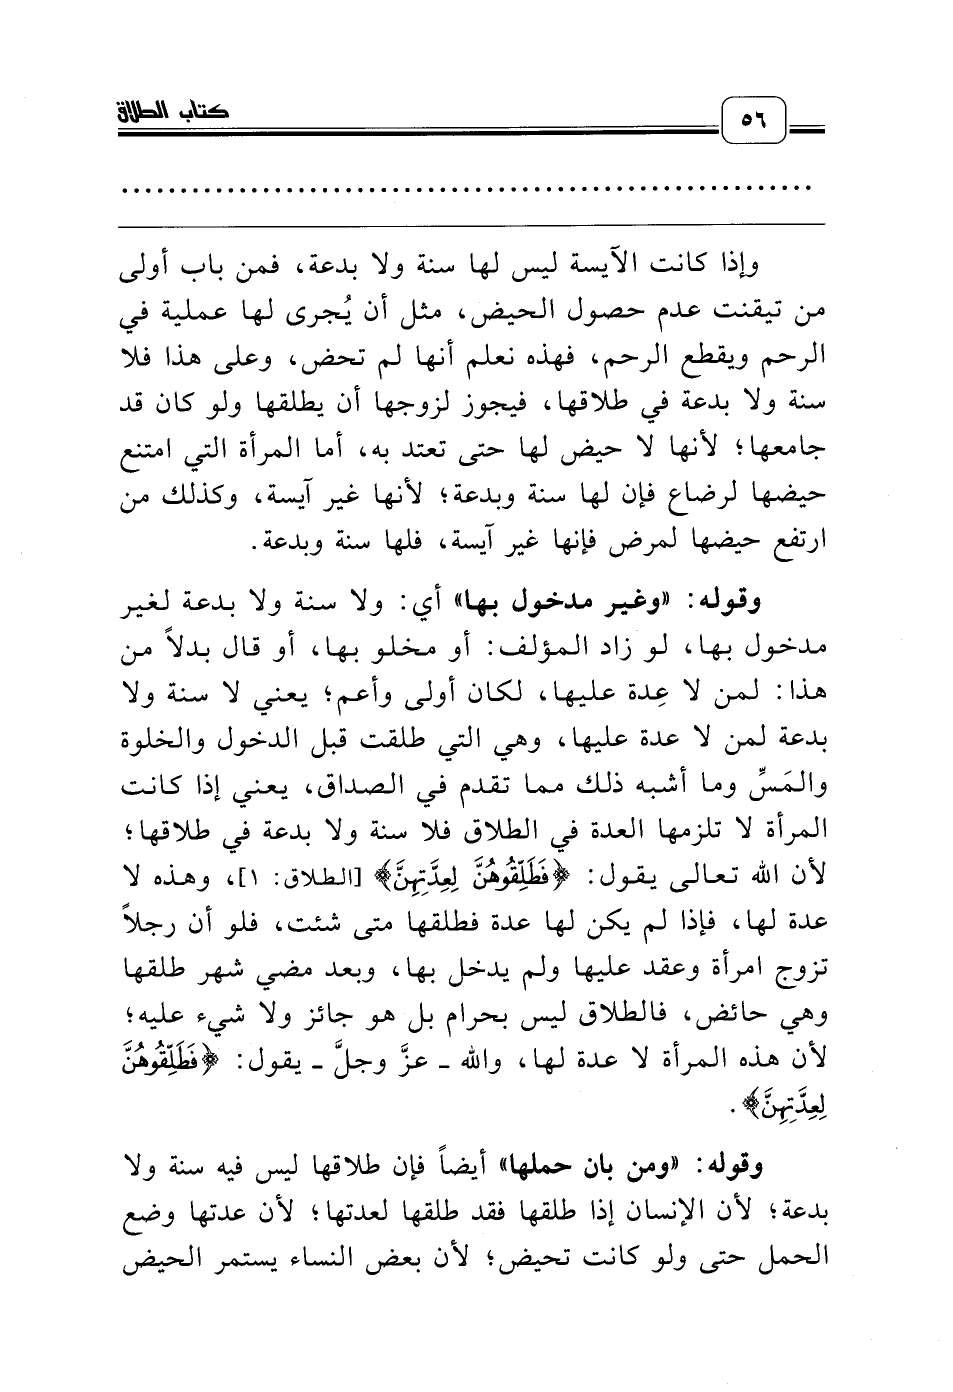 كتاب الطلاق
٥٦
وإذا كانت الآيسة ليس لها سنة ولا بدعة، فمن باب أولى
من تيقنت عدم حصول الحيض، مثل أن يُجرى لها عملية في
الرحم ويقطع الرحم، فهذه نعلم أنها لم تحض، وعلى هذا فلا
سنة ولا بدعة في طلاقها، فيجوز لزوجها أن يطلقها ولو كان قد
جامعها؛ لأنها لا حيض لها حتى تعتد به، أما المرأة التي امتنع
حيضها لرضاع فإن لها سنة وبدعة؛ لأنها غير آيسة، وكذلك من
ارتفع حيضها لمرض فإنها غير آيسة، فلها سنة وبدعة.
وقوله: «وغير مدخول بها» أي: ولا سنة ولا بدعة لغير
مدخول بها، لو زاد المؤلف: أو مخلو بها، أو قال بدلاً من
هذا: لمن لا عِدة عليها، لكان أولى وأعم؛ يعني لا سنة ولا
بدعة لمن لا عدة عليها، وهي التي طلقت قبل الدخول والخلوة
والمَسِّ وما أشبه ذلك مما تقدم في الصداق، يعني إذا كانت
المرأة لا تلزمها العدة في الطلاق فلا سنة ولا بدعة في طلاقها؛
لأن الله تعالى يقول: ﴿فَطَلِّقُوهُنَّ لِعِدَّتِهِنَّ﴾ [الطلاق: ١]، وهذه لا
عدة لها، فإذا لم يكن لها عدة فطلقها متى شئت، فلو أن رجلاً
تزوج امرأة وعقد عليها ولم يدخل بها، وبعد مضي شهر طلقها
وهي حائض، فالطلاق ليس بحرام بل هو جائز ولا شيء عليه؛
لأن هذه المرأة لا عدة لها، والله ـ عزَّ وجلَّ ـ يقول: ﴿فَطَلِّقُوهُنَّ
لِعِدَّتِهِنَّ﴾.
وقوله: «ومن بان حملها» أيضاً فإن طلاقها ليس فيه سنة ولا
بدعة؛ لأن الإنسان إذا طلقها فقد طلقها لعدتها؛ لأن عدتها وضع
الحمل حتى ولو كانت تحيض؛ لأن بعض النساء يستمر الحيض